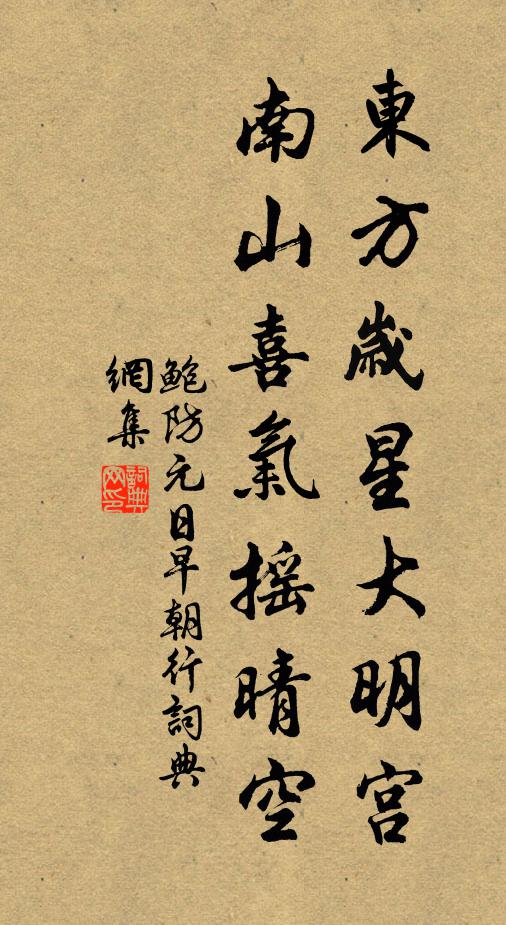 東方歲星大明宮
南山喜氣摇晴空
鲍防元日早朝行詞典
網集
詞典网印